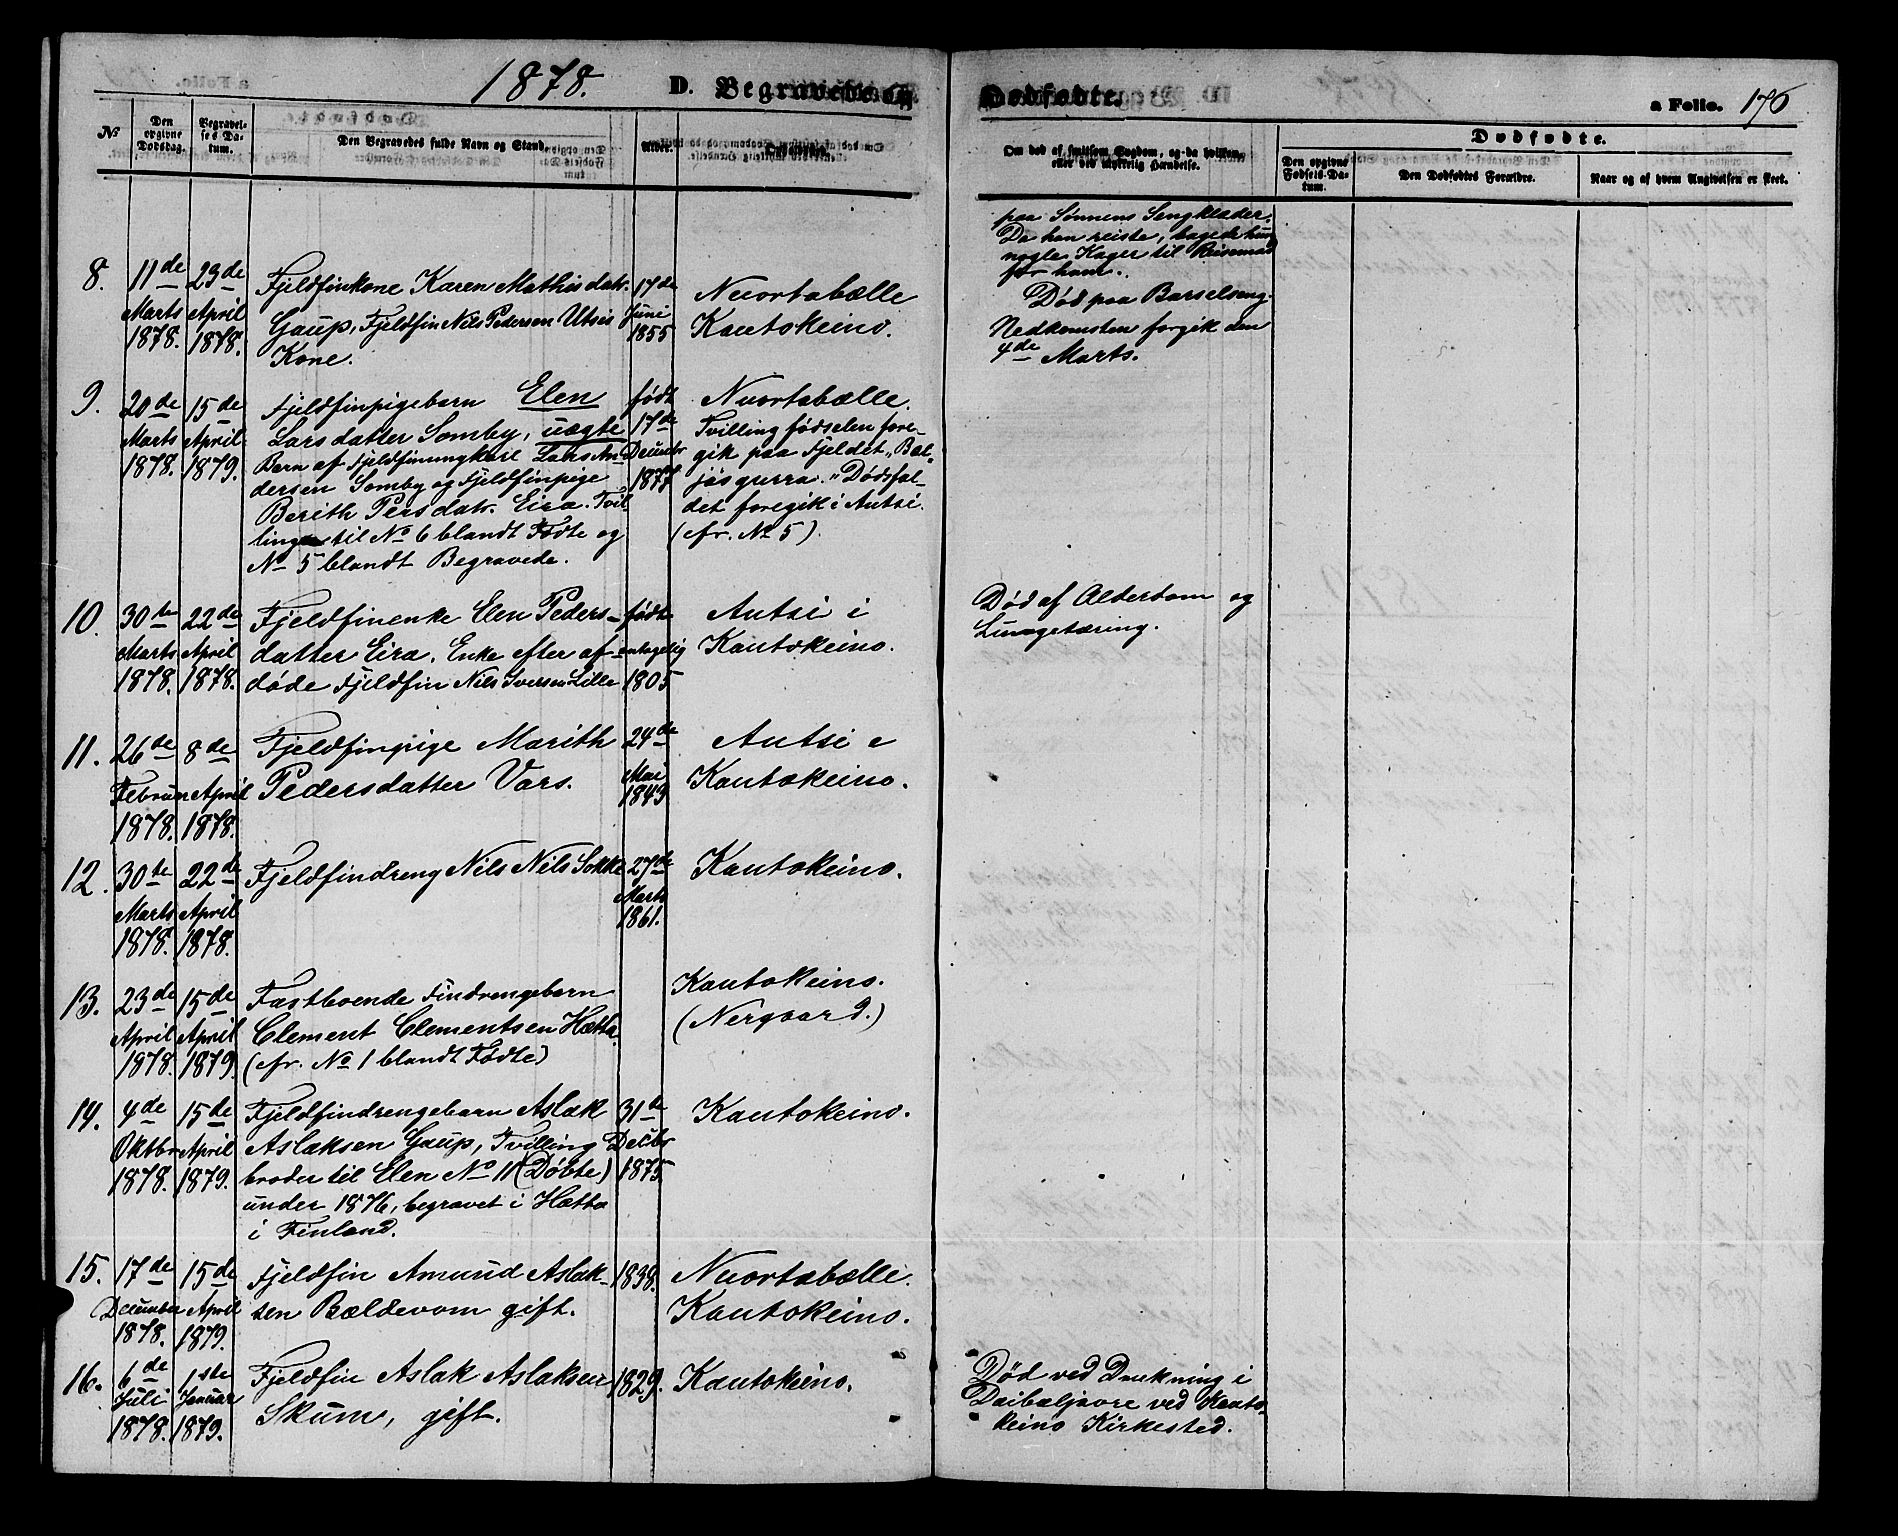 1878. D. Begravede og Dødfødte. a Folio. 176
Dødfødte.
No
Den opgivne Dødsdag.
Begravelses-Datum.
Den Begravedes fulde Navn og Stand.
Alder.
Om død af smitsom Sygdom, og da hvilken, eller ved ulykkelig Hændelse.
Den opgivne Fødsels-Datum.
Den Dødfødtes Forældre.
Naar og af hvem Angivelsen er skeet.
paa Sønnens Sengklæder.
Da han reiste, bagede hun
nogle Kager til Reisemad
for ham.
8. 11de Marts 1878. 23de April 1878.
Fjeldfinkone Karen Mathisdatr.
Gaup, Fjeldfin Nils Pedersen Utsis
Kone.
17de Juni 1855
Nuortabælle
Kautokeino.
Død paa Barselseng.
Nedkomsten forgik den
4de Marts.
9. 20de Marts 1878. 15de April 1879.
Fjeldfinpigebarn Elen
Larsdatter Somby, uægte
Barn af Fjeldfinungkarl Lars An-
dersen Somby og Fjeldfinpige
Berith Persdatr. Eira. Tvil-
ling til No 6 blandt Fødte og
No 5 blandt Begravede.
født 17de Decembr 1877
Nuortabælle.
Tvillingfødselen fore-
gik paa Fjeldet "Bæl-
jásgurra." Dødsfal-
det foregik i Autsi.
(cfr. No 5).
10. 30te Marts 1878. 22de April 1878.
Fjeldfinenke Elen Peders-
datter Eira. Enke efter af-
døde Fjeldfin Nils Iversen Lille
født antagelig 1805
Autsi i
Kautokeino.
Død af Alderdom og
Lungetæring.
11. 26de Februar 1878. 8de April 1878.
Fjeldfinpige Marith
Pedersdatter Vars.
24de Mai 1843
Autsi i
Kautokeino.
12. 30te Marts 1878. 22de April 1878.
Fjeldfindreng Nils Nils Sokki
27de Marts 1861.
Kautokeino.
13. 23de April 1878. 15de April 1879.
Fastboende Findrengebarn
Clement Clementsen Hætta.
(cfr. No 1 blandt Fødte)
Kautokeino.
(Nergaard.)
14. 4de Oktbr 1878. 15de April 1879.
Fjeldfindrengebarn Aslak
Aslaksen Gaup, Tvilling
broder til Elen No 11 (Døbte)
under 1876, begravet i Hætta
i Finland.
31te Decbr 1875
Kautokeino.
15. 17de December 1878. 15de April 1879.
Fjeldfin Amund Aslak-
sen Bældevom gift.
1838.
Nuortabælle.
Kautokeino.
16. 6de Juli 1878. 1ste Januar 1879.
Fjeldfin Aslak Aslaksen
Skum, gift.
1829.
Kautokeino.
Død ved Drukning i
Daibæljavre ved Kauto-
keino Kirkested.